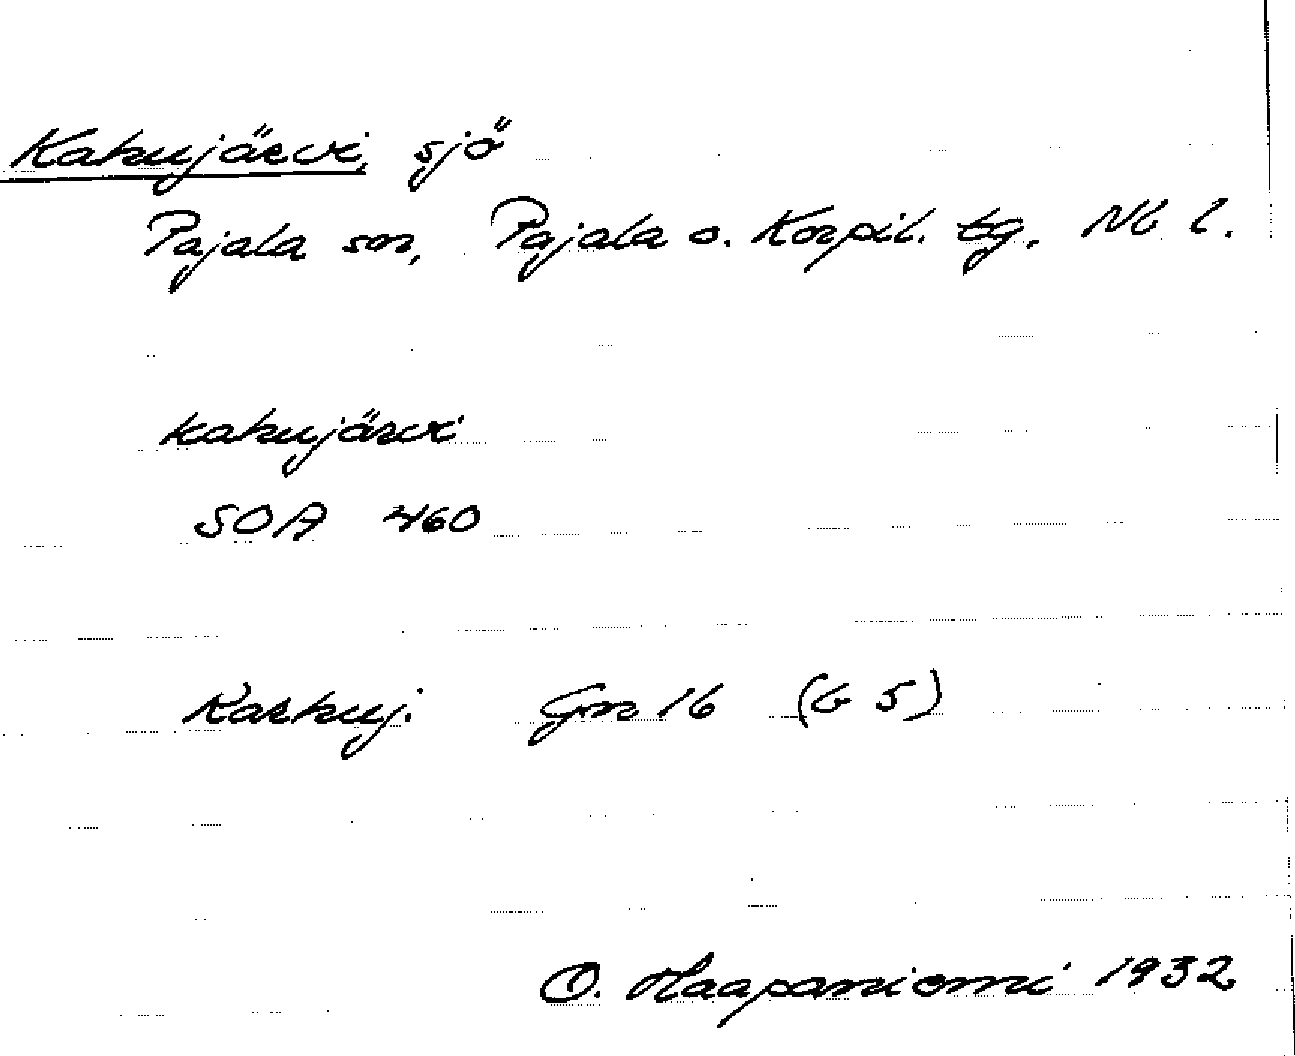 Kakujärvi, sjö
Pajala sn, Pajala o. Korpil. tg. Nb l.
kakujärvi
SOA 460
Karkuj. Gm 16 (G 5)
O. Haapaniemi 1932